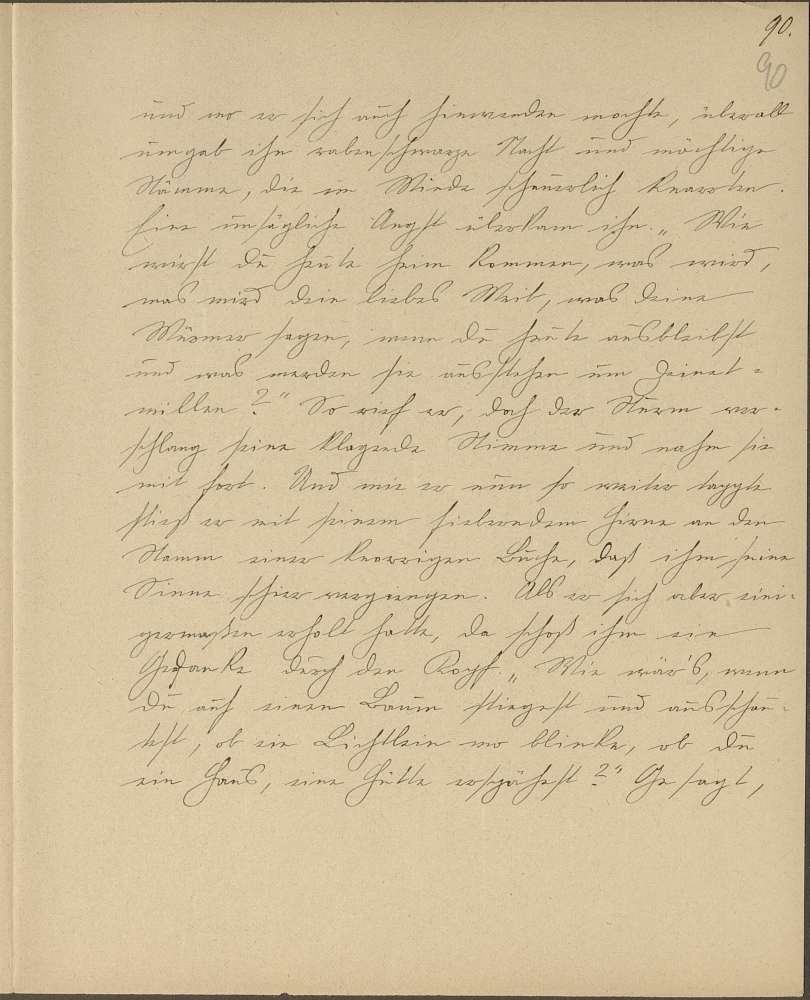 90.
90
und wo er sich auch hinwenden mochte, überall
umgab ihn rabenschwarze Nacht und mächtige
Stämme, die im Winde schauerlich knarrten.
Eine unsägliche Angst überkam ihn. „Wie
wirst du heute heim kommen, was wird,
was wird dein liebes Weib, was deine
Würmer sagen, wenn du heute ausbleibst
und was werden sie ausstehen um Deinet-
willen?“ So rief er, doch der Sturm ver-
schlang seine klagende Stimme und nahm sie
mit fort. Und wie er nun so weiter tappte
stieß er mit seinem fiebernden Hirne an den
Stamm einer knorrigen Buche, daß ihm seine
Sinne schier vergiengen. Als er sich aber eini-
germaßen erholt hatte, da schoß ihm ein
Gedanke durch den Kopf. „Wie wär's, wenn
du auf einen Baum stiegest und ausschau-
test, ob ein Lichtlein wo blinke, ob du
ein Haus, eine Hütte erspähest?“ Gesagt,